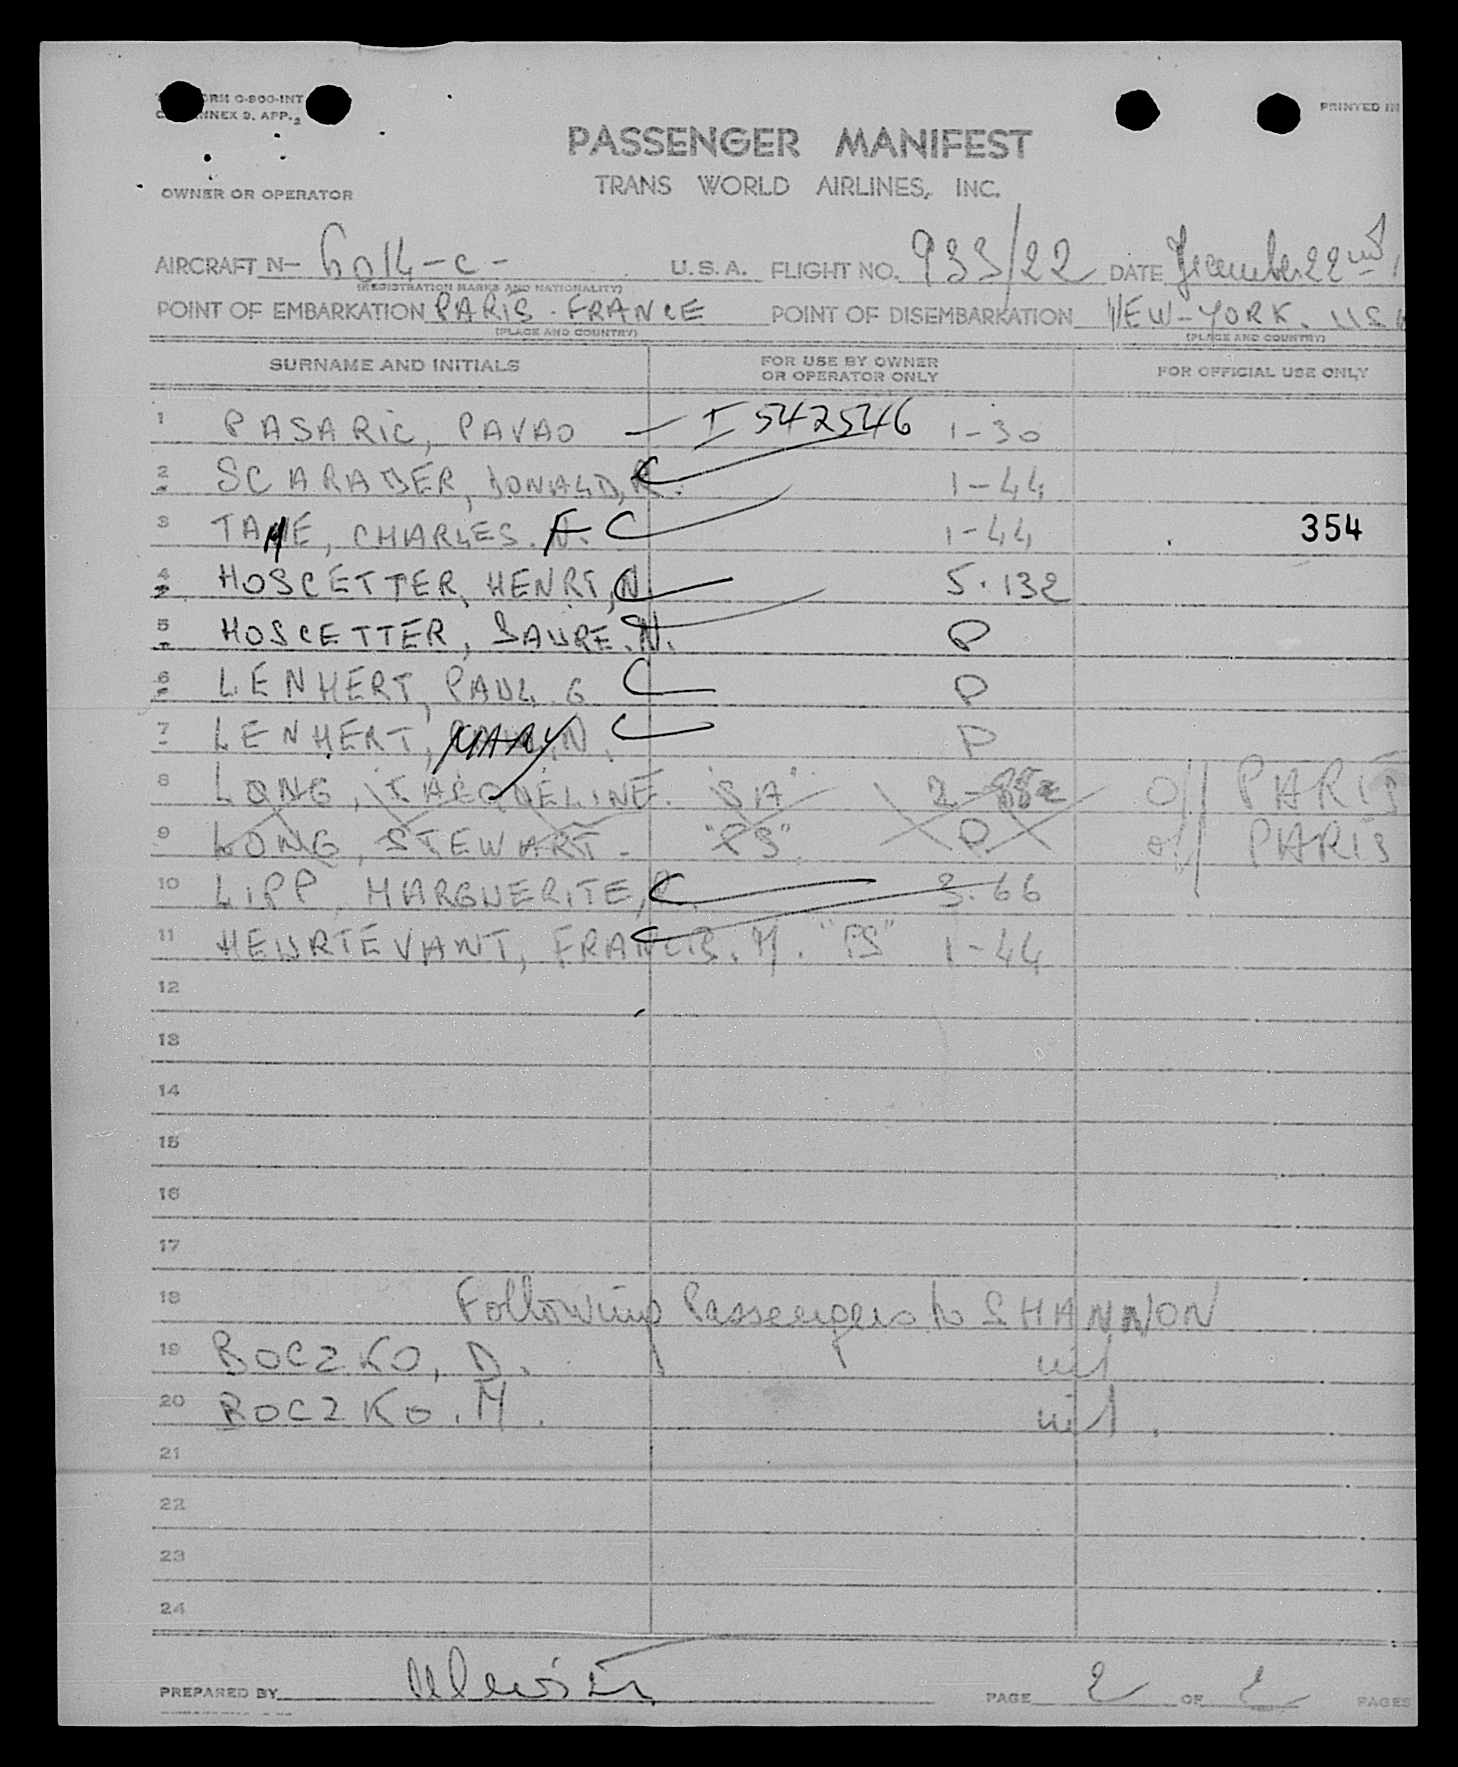 ORM O-800-INT
NNEX 9. APP. 2
PRINTED IN
PASSENGER MANIFEST
TRANS WORLD AIRLINES, INC.
OWNER OR OPERATOR
AIRCRAFT N- 6014-C- U.S.A. FLIGHT NO. 933/22 DATE December 22nd
(REGISTRATION MARKS AND NATIONALITY)
POINT OF EMBARKATION PARIS - FRANCE POINT OF DISEMBARKATION NEW-YORK. USA
(PLACE AND COUNTRY) (PLACE AND COUNTRY)
SURNAME AND INITIALS FOR USE BY OWNER OR OPERATOR ONLY FOR OFFICIAL USE ONLY
1 PASARIC, PAVAO - I 542546 1-30
2 SCARABER, DONALD, R. C 1-44
3 TAME, CHARLES. F. C 1-44 354
4 HOSCETTER, HENRI, N C 5.132
5 HOSCETTER, LAURE. N. P
6 LENHERT, PAUL G C P
7 LENHERT, MARY N. C P
8 LONG, JACQUELINE. "SA" 2-88 off PARIS
9 LONG, STEWART - "PS" P off PARIS
10 LIPP, MARGUERITE, C 3.66
11 HEURTEVANT, FRANCIS. M. "PS" 1-44
12
13
14
15
16
17
18 Following Passengers to SHANNON
19 BOCZKO, D. nil
20 BOCZKO. M. nil.
21
22
23
24
PREPARED BY PAGE 2 OF 2 PAGES